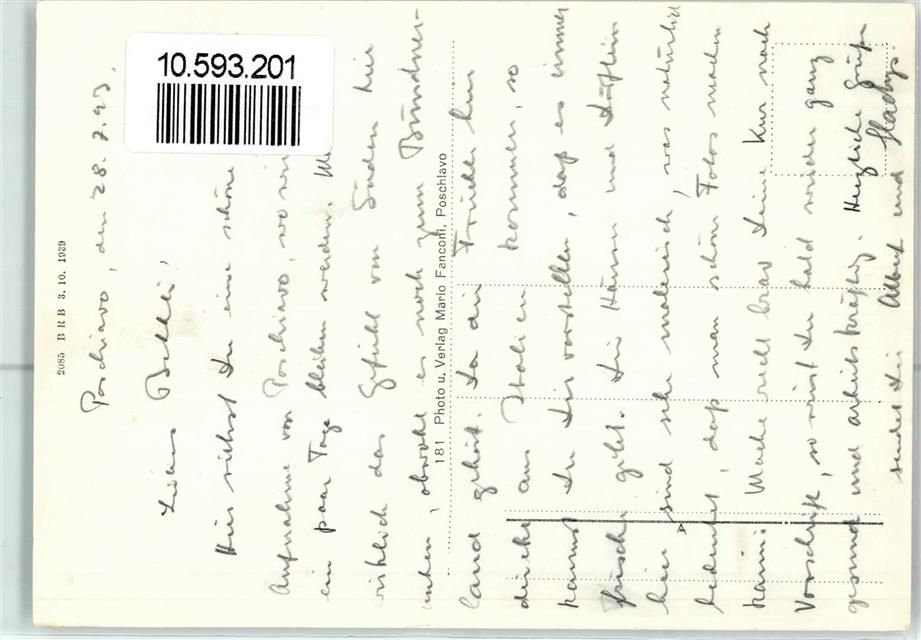 10.593.201
2085 B R B 3. 10. 1939
181 Photo u. Verlag Mario Fanconi, Poschlavo
Poschiavo, den 28. 7. 43.
Liebes
Hier siehst Du eine schöne
Aufnahme von Poschiavo, wo wir
ein paar Tage bleiben werden.
wirklich das Gefühl vom Süden hier
unten, obwohl es noch zum Bündner-
land gehört. Da die Früchte hier
direkt aus Italien kommen, so
kannst Du Dir vorstellen, dass es immer
frische gibt. Die Häuser und
hier sind sehr malerisch, was natürlich
bedeutet, dass man schön Fotos machen
kann. Mache recht brav Deine Kur nach
Vorschrift, so wirst Du bald wieder ganz
gesund und arbeitskräftig. Herzliche Grüsse
sendet Dir Albert und Gladys